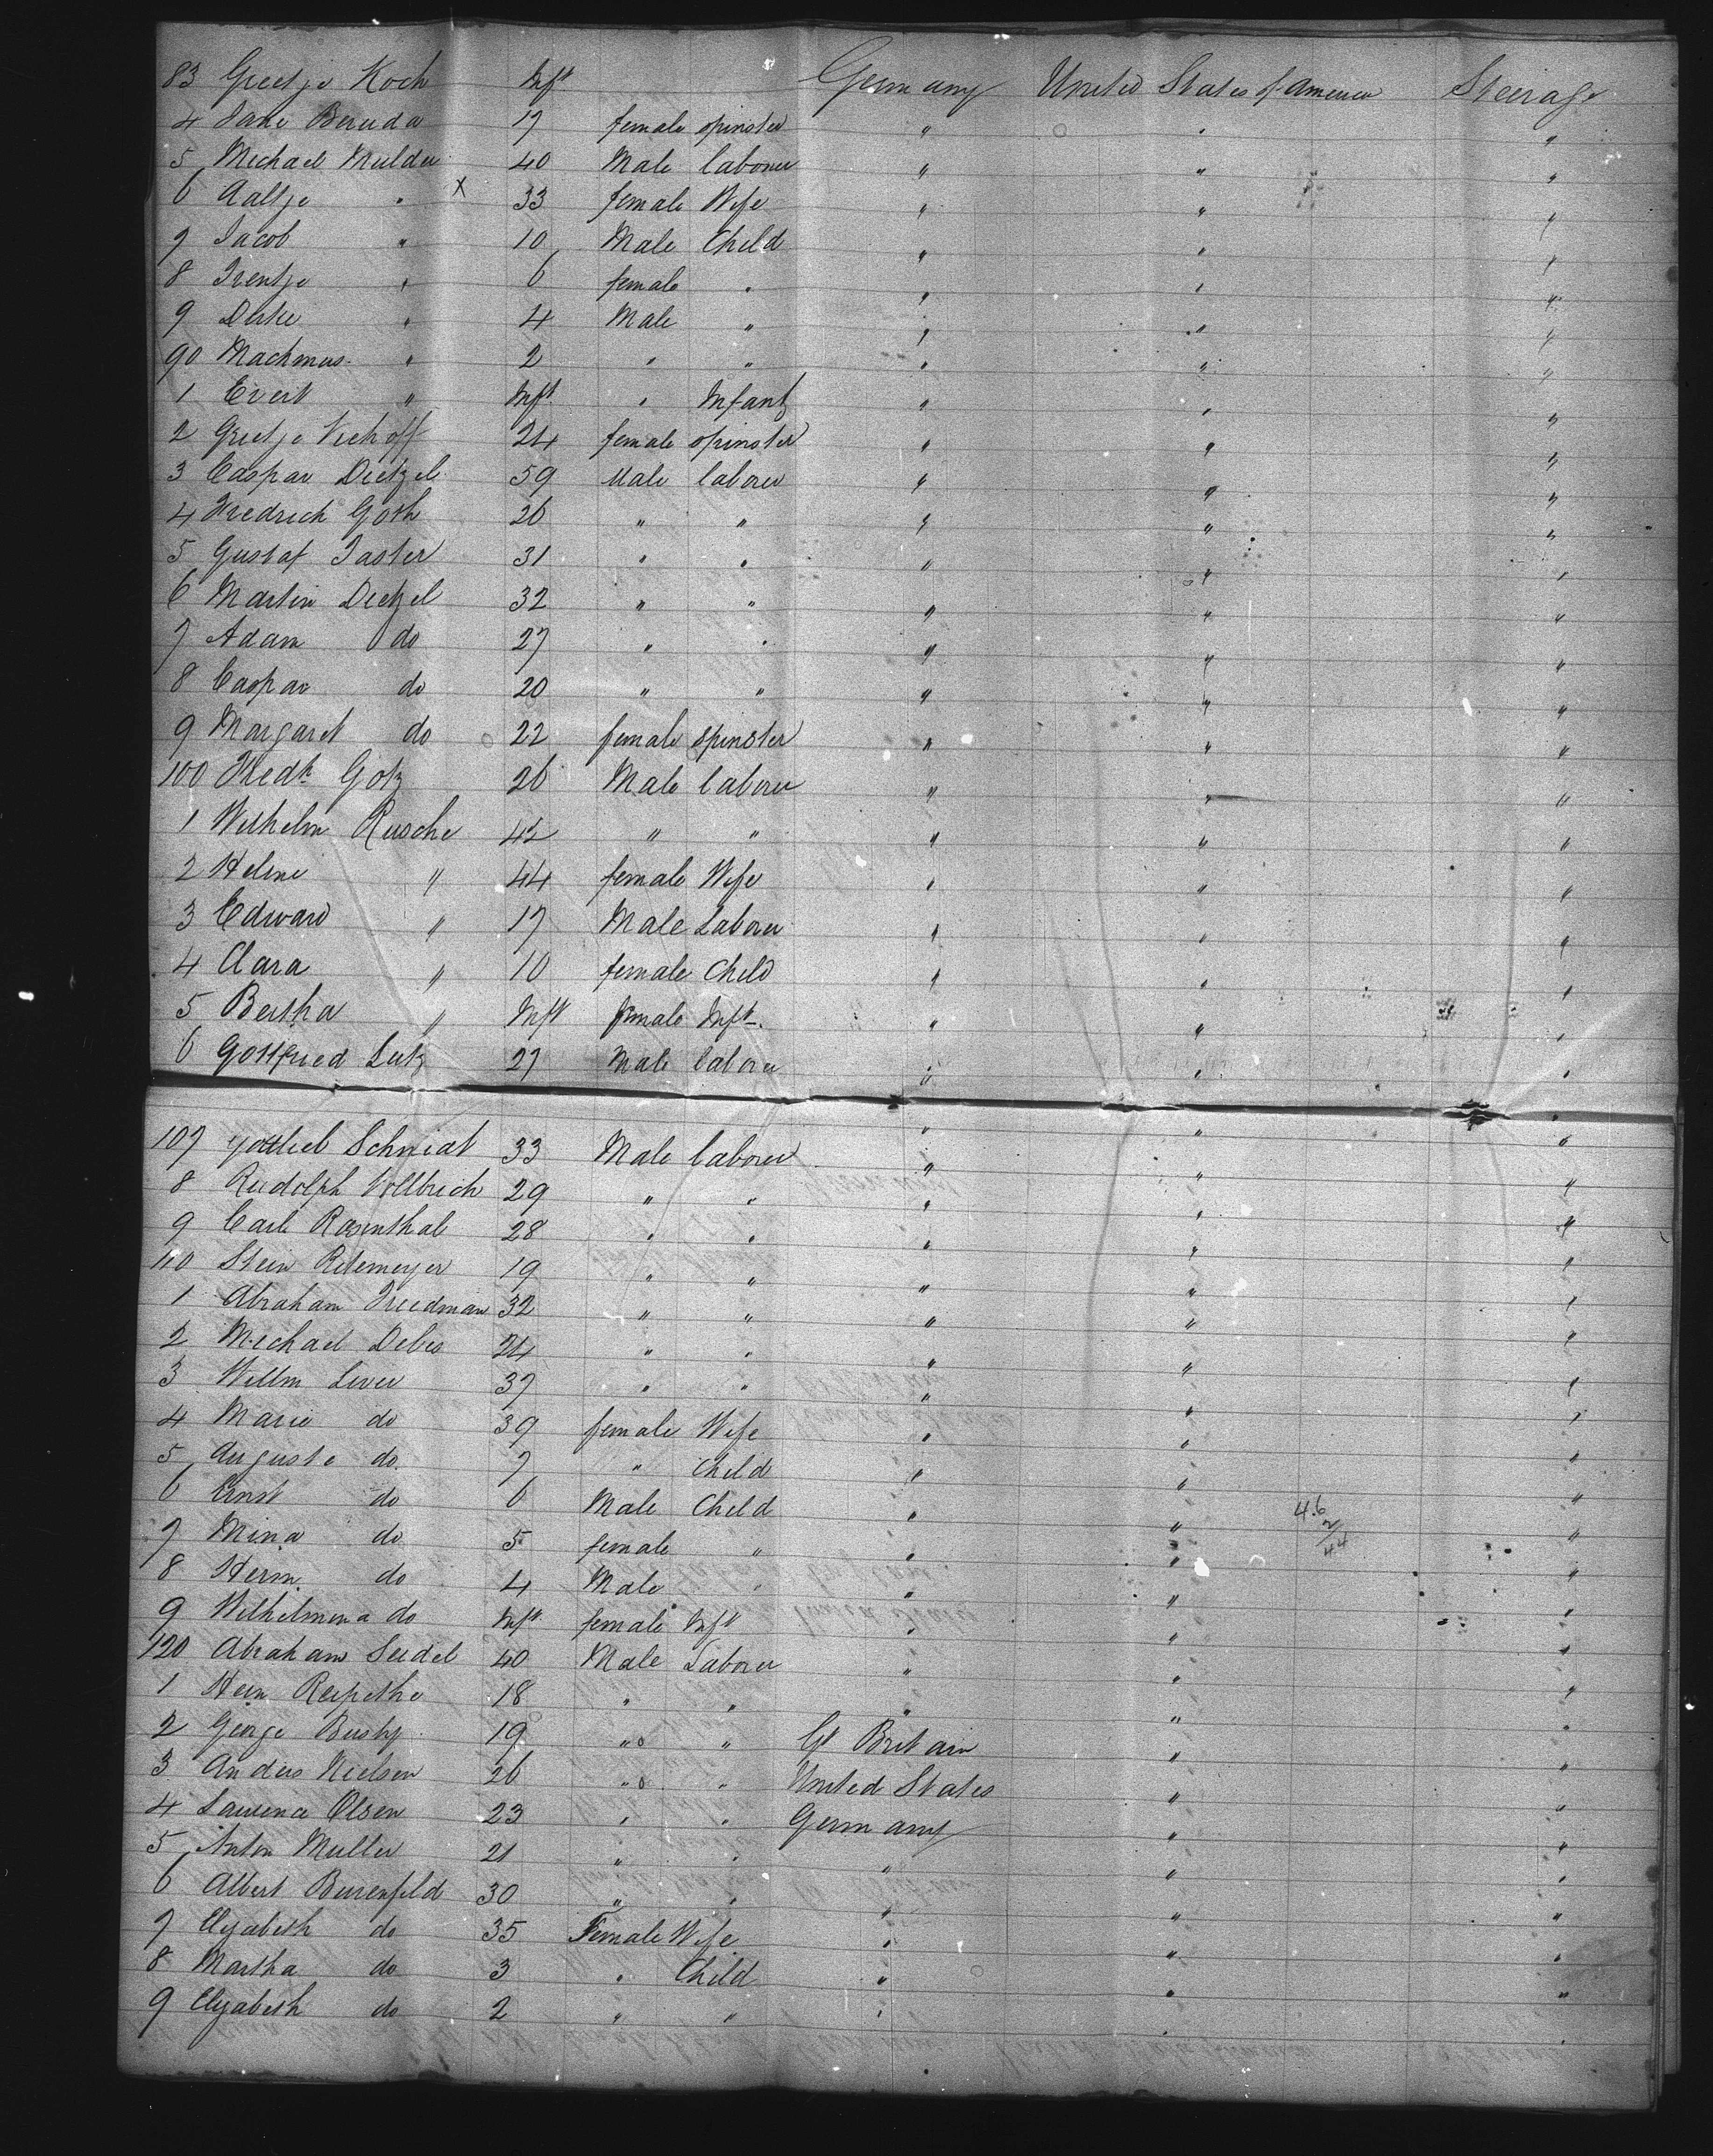 83 Greetje Koch Inft Germany United States of America Steerage
4 Jane Beruda 17 female spinster " " "
5 Michael Mulder 40 Male laborer " " "
6 Aaltje " x 33 female Wife " " "
7 Jacob " 10 Male Child " " "
8 Trentje " 6 female " " " "
9 " 4 Male " " " "
90 Machmus " 2 " " " " "
1 Evert " Inft " Infant " " "
2 Greetje Viehoff 24 female spinster " " "
3 Caspar Dietzel 59 Male laborer " " "
4 Fredrich Goth 26 " " " " "
5 Gustaf Taster 31 " " " " "
6 Martin Dietzel 32 " " " " "
7 Adam do 27 " " " " "
8 Caspar do 20 " " " " "
9 Margaret do 22 female spinster " " "
100 Fredk Gotz 26 Male laborer " " "
1 Wilhelm Rusche 42 " " " " "
2 Helene " 44 female Wife " " "
3 Edward " 17 Male Laborer " " "
4 Clara " 10 female Child " " "
5 Bertha " Inft female Inft. " " "
6 Gottfried Lutz 27 Male laborer " " "
107 Gottlieb Schmidt 33 Male laborer " " "
8 Rudolph Vollbrich 29 " " " " "
9 Carl Rosenthal 28 " " " " "
110 Stein Ritemeyer 19 " " " " "
1 Abraham Freedman 32 " " " " "
2 Michael Debes 24 " " " " "
3 Willm Lever 37 " " " " "
4 Marie do 39 female Wife " " "
5 Auguste do. 7 " Child " " "
6 Ernst do 6 Male Child " " 46 "
7 Mina do 5 female " " " 2/44 "
8 Herm. do 4 Male " " " "
9 Wilhelmina do Inft female Inft " " "
120 Abraham Seidel 40 Male Laborer " " "
1 Hein 18 " " " " "
2 George Busby 19 " " Gt Britain " "
3 Anders Nielsen 26 " " United States " "
4 Lawrence Olsen 23 " " Germany " "
5 Anton Muller 21 " " " " "
6 Albert Beirenfeld 30 " " " " "
7 Elyabeth do 35 Female Wife " " "
8 Martha do 3 " Child " " "
9 Elyabeth do 2 " " " " "